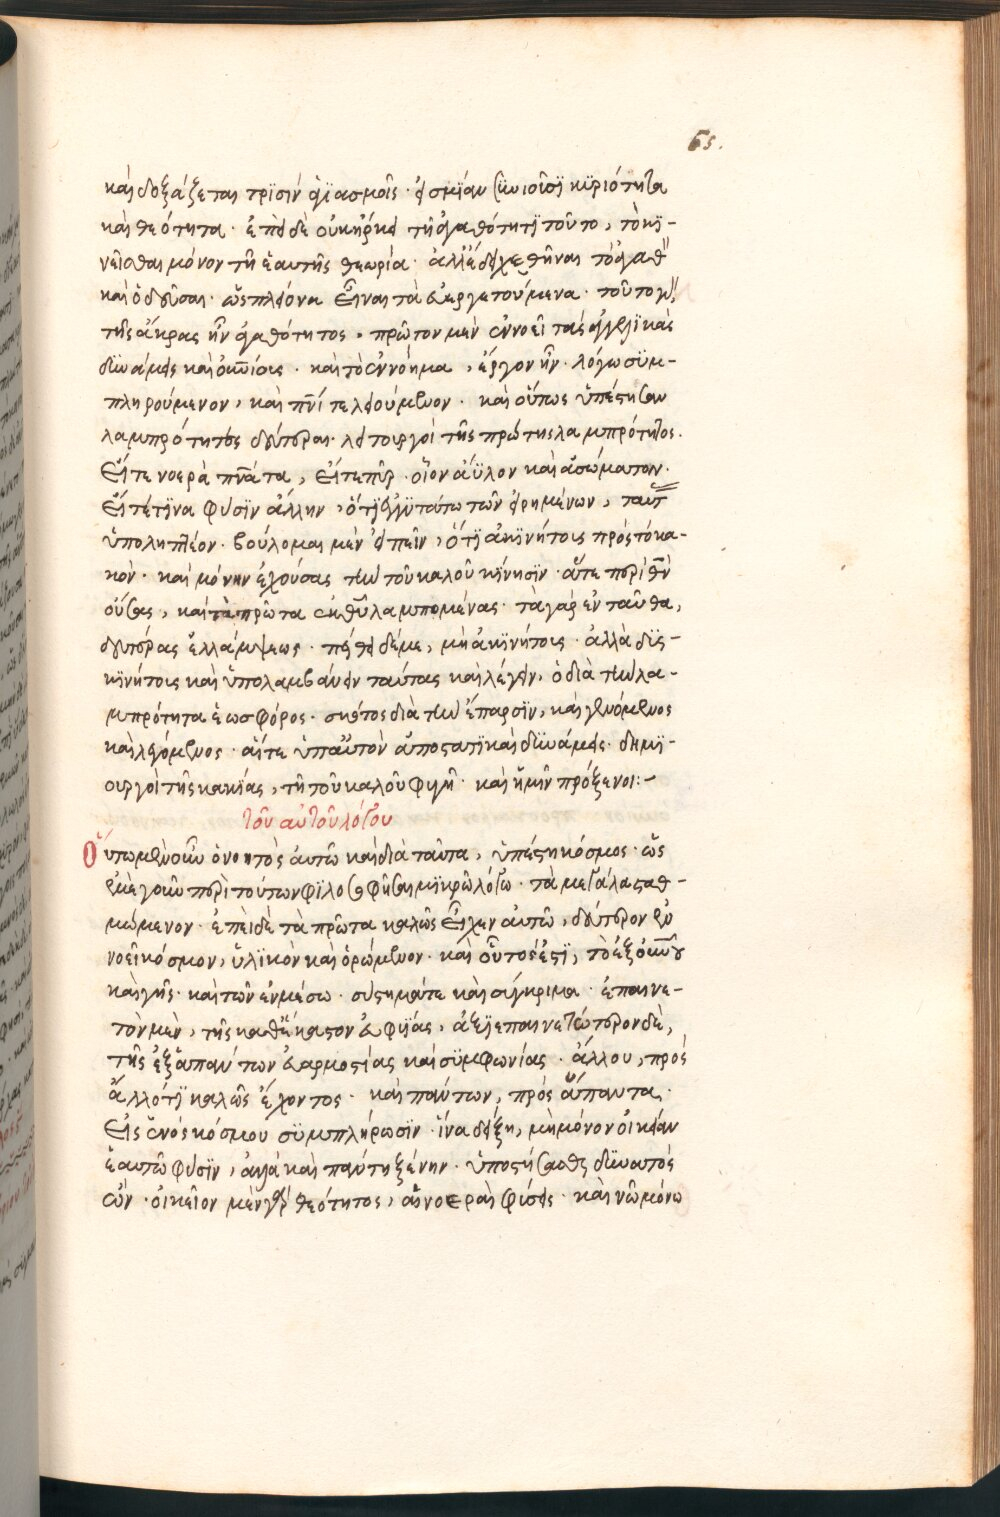 65.
καὶ δοξάζεται τρϊσὶν ἁγϊασμοῖς· εἰς μϊὰν συνιοῦσϊ κϋριότητα
καὶ θεότητα· ἐπεὶ δὲ οὐκ ἤρκει τῇ ἀγαθότητϊ τοῦτο, τὸ κϊ-
νεῖσθαι μόνον τῇ ἑαυτῆς θεωρία· ἀλλ' ἔδει χεθῆναι τὸ ἀγαθ
καὶ ὁδεῦσαι· ὡς πλείονα εἶναι τὰ εὐεργετούμενα· τοῦτο γ
τῆς ἄκρας ἦν ἀγαθότητος, πρῶτον μὲν ἐννοεῖ τὰς ἀγγελϊκὰς
δϋνάμεις καὶ οὐνίους· καὶ τὸ ἐννόημα, ἔργον ἦν· λόγω σϋμ-
πληρούμενον, καὶ πνί τελειούμενον· καὶ οὕτως ὑπέστησαν
λαμπρότητος δεύτεραι· λειτουργοὶ τῆς πρώτης λαμπρότητος.
Εἴτε νοερὰ πνάτα, εἴτε πῦρ· οἷον ἄϋλον καὶ ἀσώματον·
Εἴτέ τϊνα φύσϊν ἄλλην, ὅτϊ ἐγγϋτάτω τῶν εἰρημένων, ταῦτ
ὑποληπτέον· βούλομαι μὲν εἰπεῖν, ὅτϊ ἀκϊνήτους πρὸς τὸ κα-
κόν· καὶ μόνην ἐχούσας τὴν τοῦ καλοῦ κϊνησϊν· ἅτε περὶ θν
οὔσας, καὶ τὰ πρῶτα ἐκ θῦ λαμπομένας· τὰ γὰρ ἐνταῦθα,
δευτέρας ἐλλάμψεως· πείθει δέ με, μὴ ἀκϊνήτους· ἀλλὰ δϋς-
κϊνήτους καὶ ὑπολαμβάνειν ταύτας καὶ λέγειν, ὁ διὰ τὴν λα-
μπρότητα ἑωσφόρος· σκότος διὰ τὴν ἔπαρσϊν, καὶ γενόμενος
καὶ λεγόμενος· αἵτε ὑπ' αὐτὸν ἀποστατϊκαὶ δϋνάμεις· δημϊ-
ουργοὶ τῆς κακϊας, τῇ τοῦ καλοῦ φυγῇ· καὶ ἡμῖν πρόξενοι:-
τοῦ αὐτοῦ λόγου
Οὕτω μὲν οὖν ὁ νοητὸς αὐτῶ καὶ διὰ ταῦτα, ὑπέστη κόσμος· ὡς
ἐμὲ γοῦν περὶ τούτων φϊλοσοφῆσαι μϊκρῶ λόγω· τὰ μεγάλα σταθ-
μώμενον· ἐπεὶ δὲ τὰ πρῶτα καλῶς εἶχεν αὐτῶ, δεύτερον ἐν
νοεῖ κόσμον, ὑλϊκὸν καὶ ὁρώμενον· καὶ οὗτός ἐστϊ, τὸ ἐξ οὐνοῦ
καὶ γῆς· καὶ τῶν ἐν μέσω· σύστημά τε καὶ σύγκριμα· ἐπαινε-
τὸν μὲν, τῆς καθ' ἕκαστον εὐφυΐας, ἀξϊεπαινετώτερον δὲ,
τῆς ἐξ ἁπάντων εὐαρμοστίας καὶ σϋμφωνίας· ἄλλου, πρὸς
ἄλλό τϊ καλῶς ἔχοντος· καὶ πάντων, πρὸς ἅπαντα.
Εἰς ἑνὸς κόσμου σϋμπλήρωσϊν· ἵνα δείξη, μὴ μόνον οἰκείαν
ἑαυτῶ φύσϊν, ἀλλὰ καὶ πάντη ξένην· ὑποστήσασθαι δϋνατὸς
ὤν· οἰκεῖον μὲν γὰρ θεότητος, αἱ νοεραὶ φύσεις· καὶ νῶ μόνω